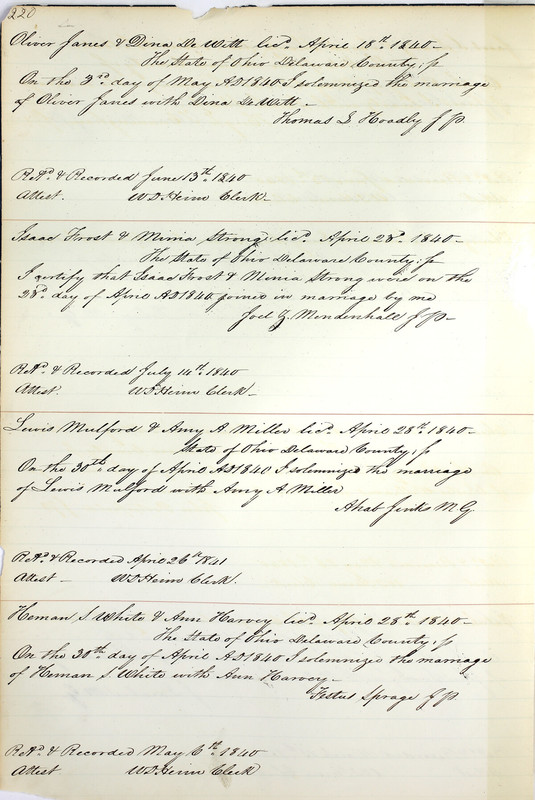 220
Oliver Janes & Dina De Witt licd. April 18th. 1840-
The State of Ohio Delaware County; ss
On the 3rd. day of May AD1840 I solemnized the marriage
of Oliver Janes with Dina De Witt -
Thomas S Hoadly J P.
Retd. & Recorded June 13th. 1840
Attest. W D Heim Clerk-
Isaac Frost & Minia Strong licd. April 28d. 1840-
The State of Ohio Delaware County; ss
I certify that Isaac Frost & Minia Strong were on the
28d. day of April AD1840 joined in marriage by me
Joel Z Mendenhall J P-
Retd. & Recorded July 14th. 1840
Attest. W D Heim Clerk-
Lewis Mulford & Amy A Miller licd. April 28th. 1840-
State of Ohio Delaware County; ss
On the 30th. day of April AD1840 I solemnized the marriage
of Lewis Mulford with Amy A Miller
Ahab Jinks M G.
Retd. & Recorded April 26th 1841
Attest - W D Heim Clerk.
Heman S White & Ann Harvey licd. April 28th. 1840-
The State of Ohio Delaware County; ss
On the 30th. day of April AD1840 I solemnized the marriage
of Heman S White with Ann Harvey-
Festus Sprage J P.
Retd. & Recorded May 6th. 1840
Attest. W D Heim Clerk